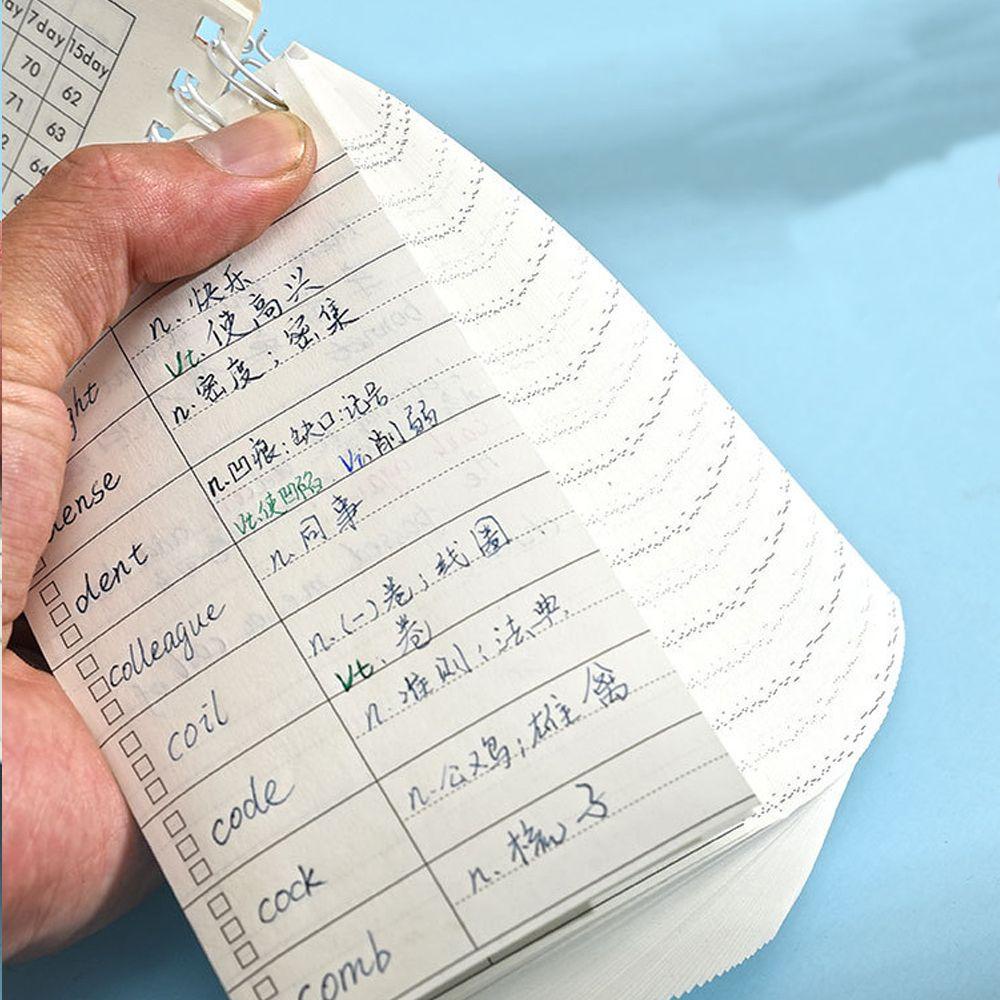 7day 15day
70 62
71 63
64
ght n. 快乐
vt. 使高兴
ense n. 密度；密集
dent n. 凹痕；缺口；记号
vt. 使凹陷 vi. 削弱
colleague n. 同事
coil n. (一)卷；线圈
vt. 卷
code n. 准则；法典
cock n. 公鸡；雄禽
comb n. 梳子